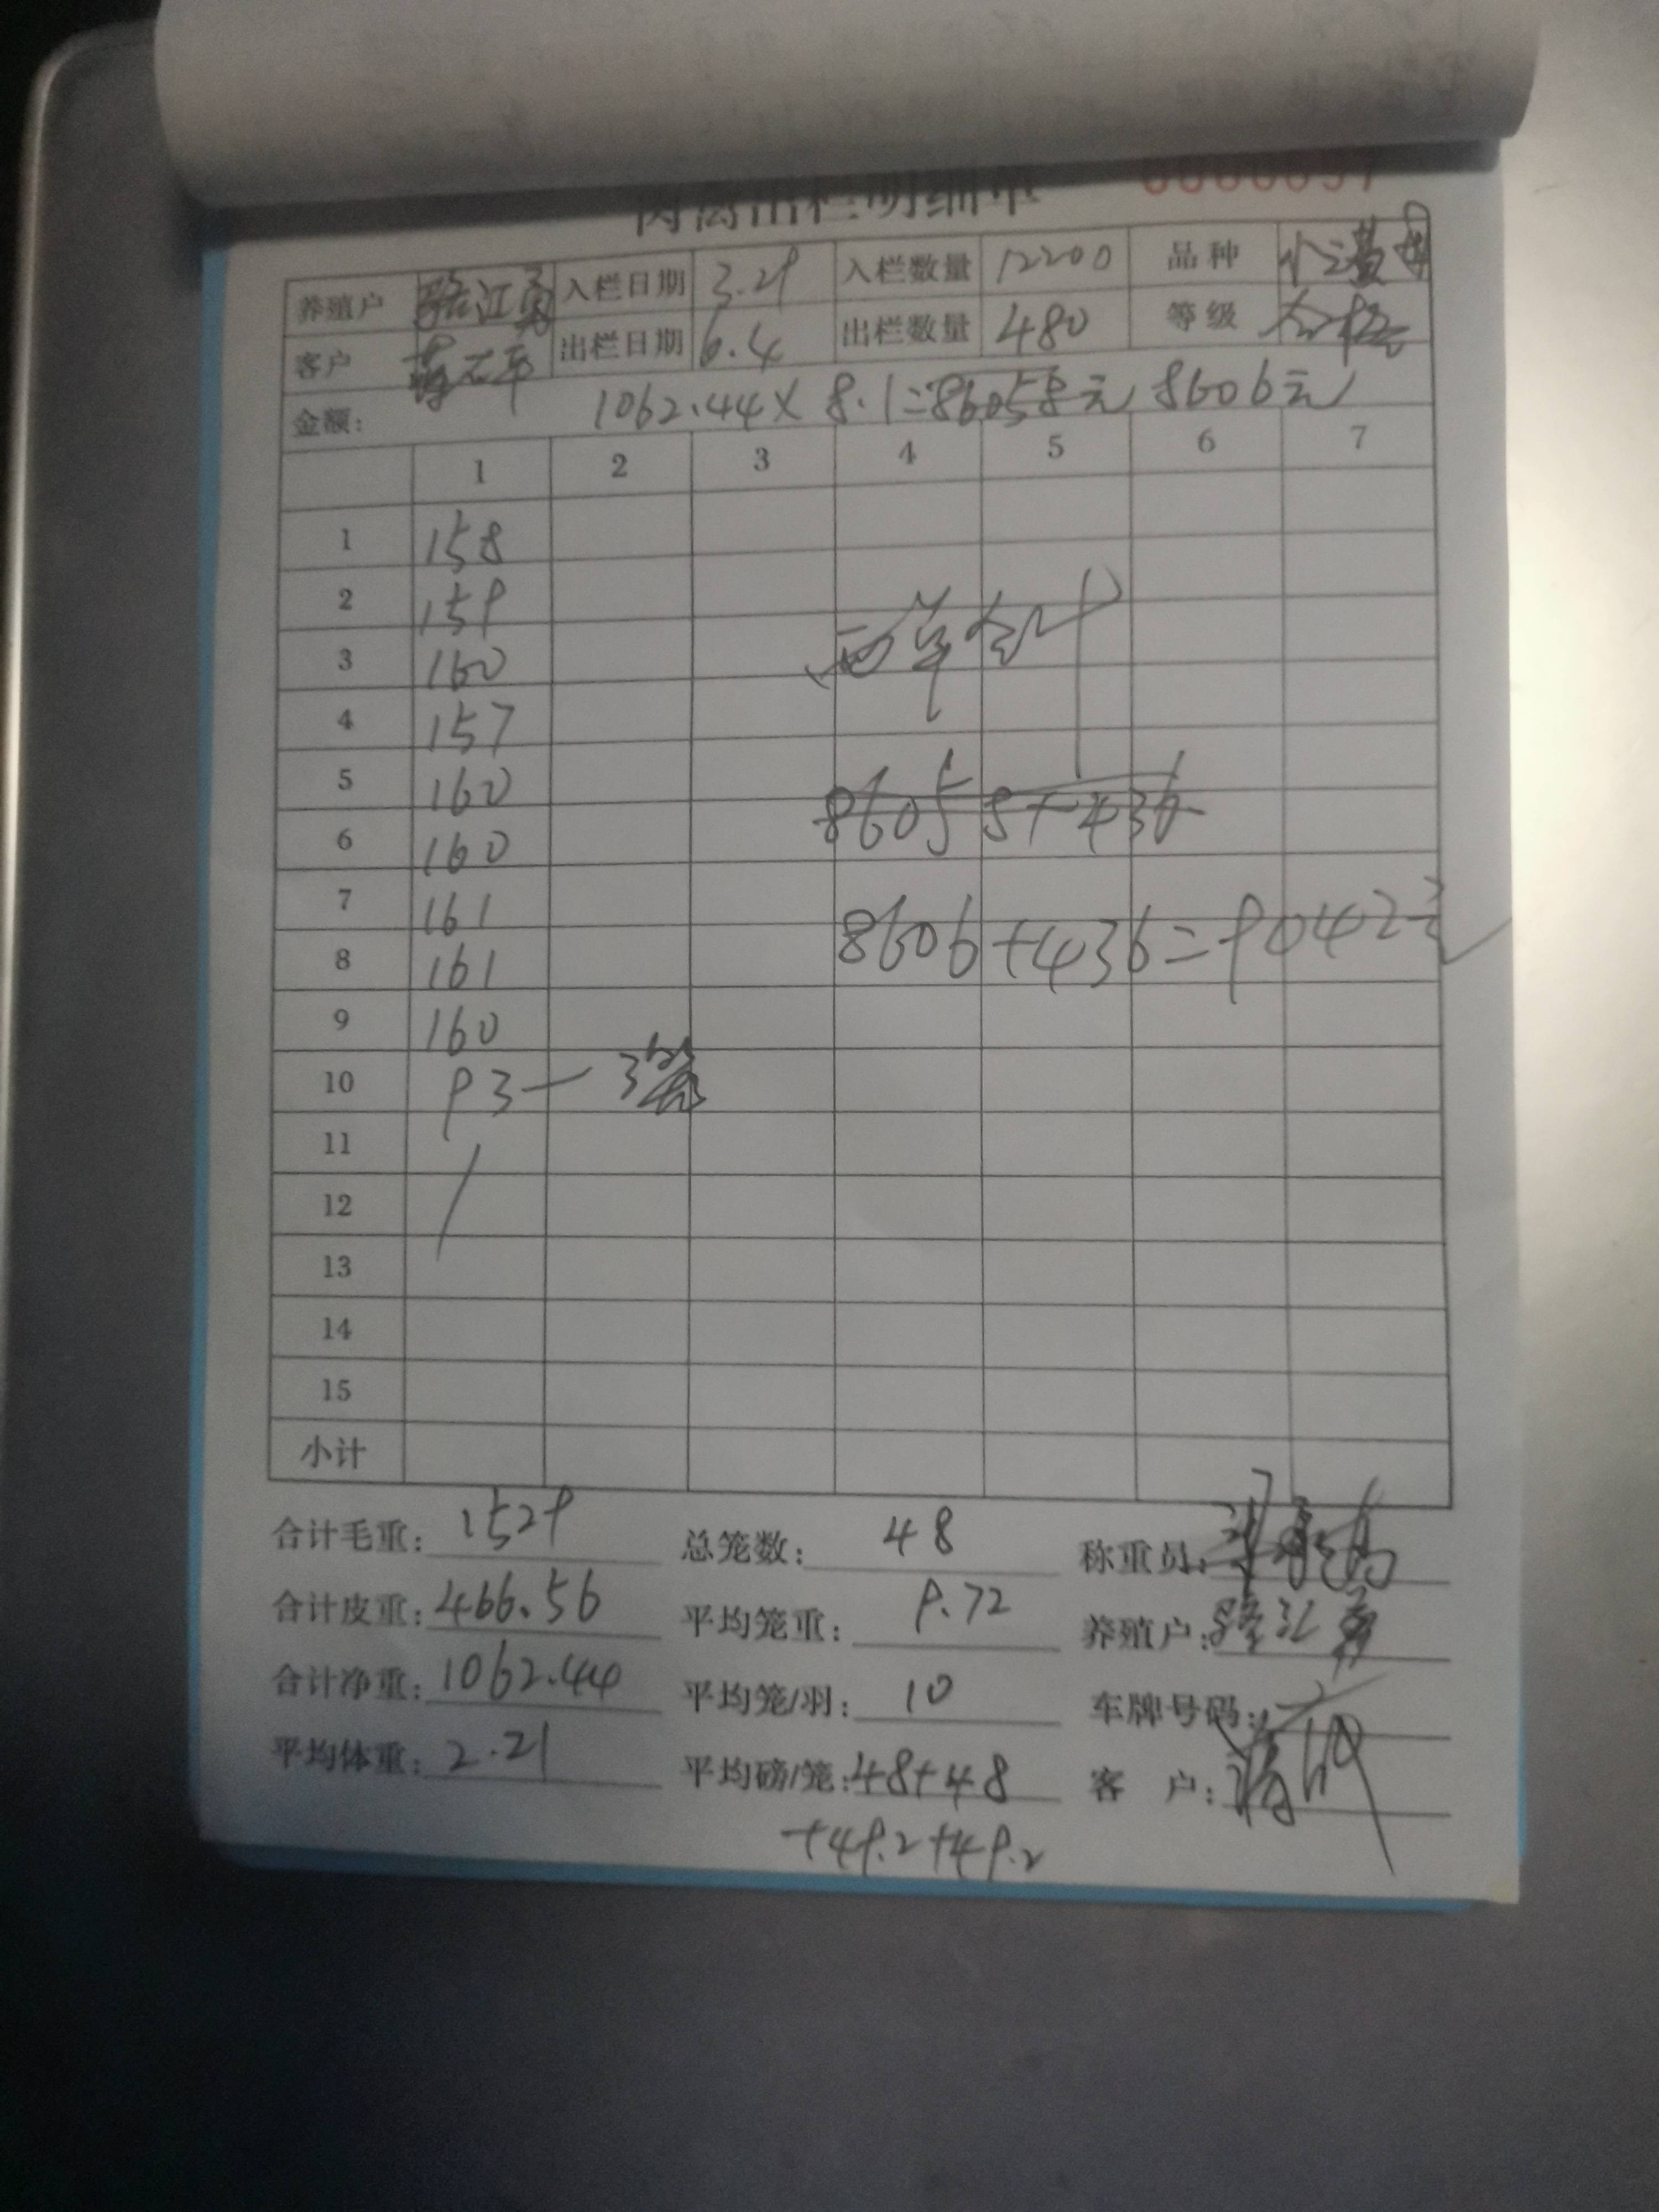 肉禽出栏明细单
养殖户 骆江勇 入栏日期 3.29 入栏数量 12200 品种
客户 出栏日期 6.4 出栏数量 480 等级 合格
金额: 1062.44×8.1=86058元 8606元
1 2 3 4 5 6 7
1 158
2 159
3 160
两单合计
4 157
5 160
86058+436
6 160
7 161
8606+436=9042元
8 161
9 160
10 93—3笼
11
12
13
14
15
小计
合计毛重: 1529 总笼数: 48 称重员:
合计皮重: 466.56 平均笼重: 9.72 养殖户: 骆江勇
合计净重: 1062.44 平均笼/羽: 10 车牌号码:
平均体重: 2.21 平均磅/笼: 48+48 客 户:
+49.2+49.2